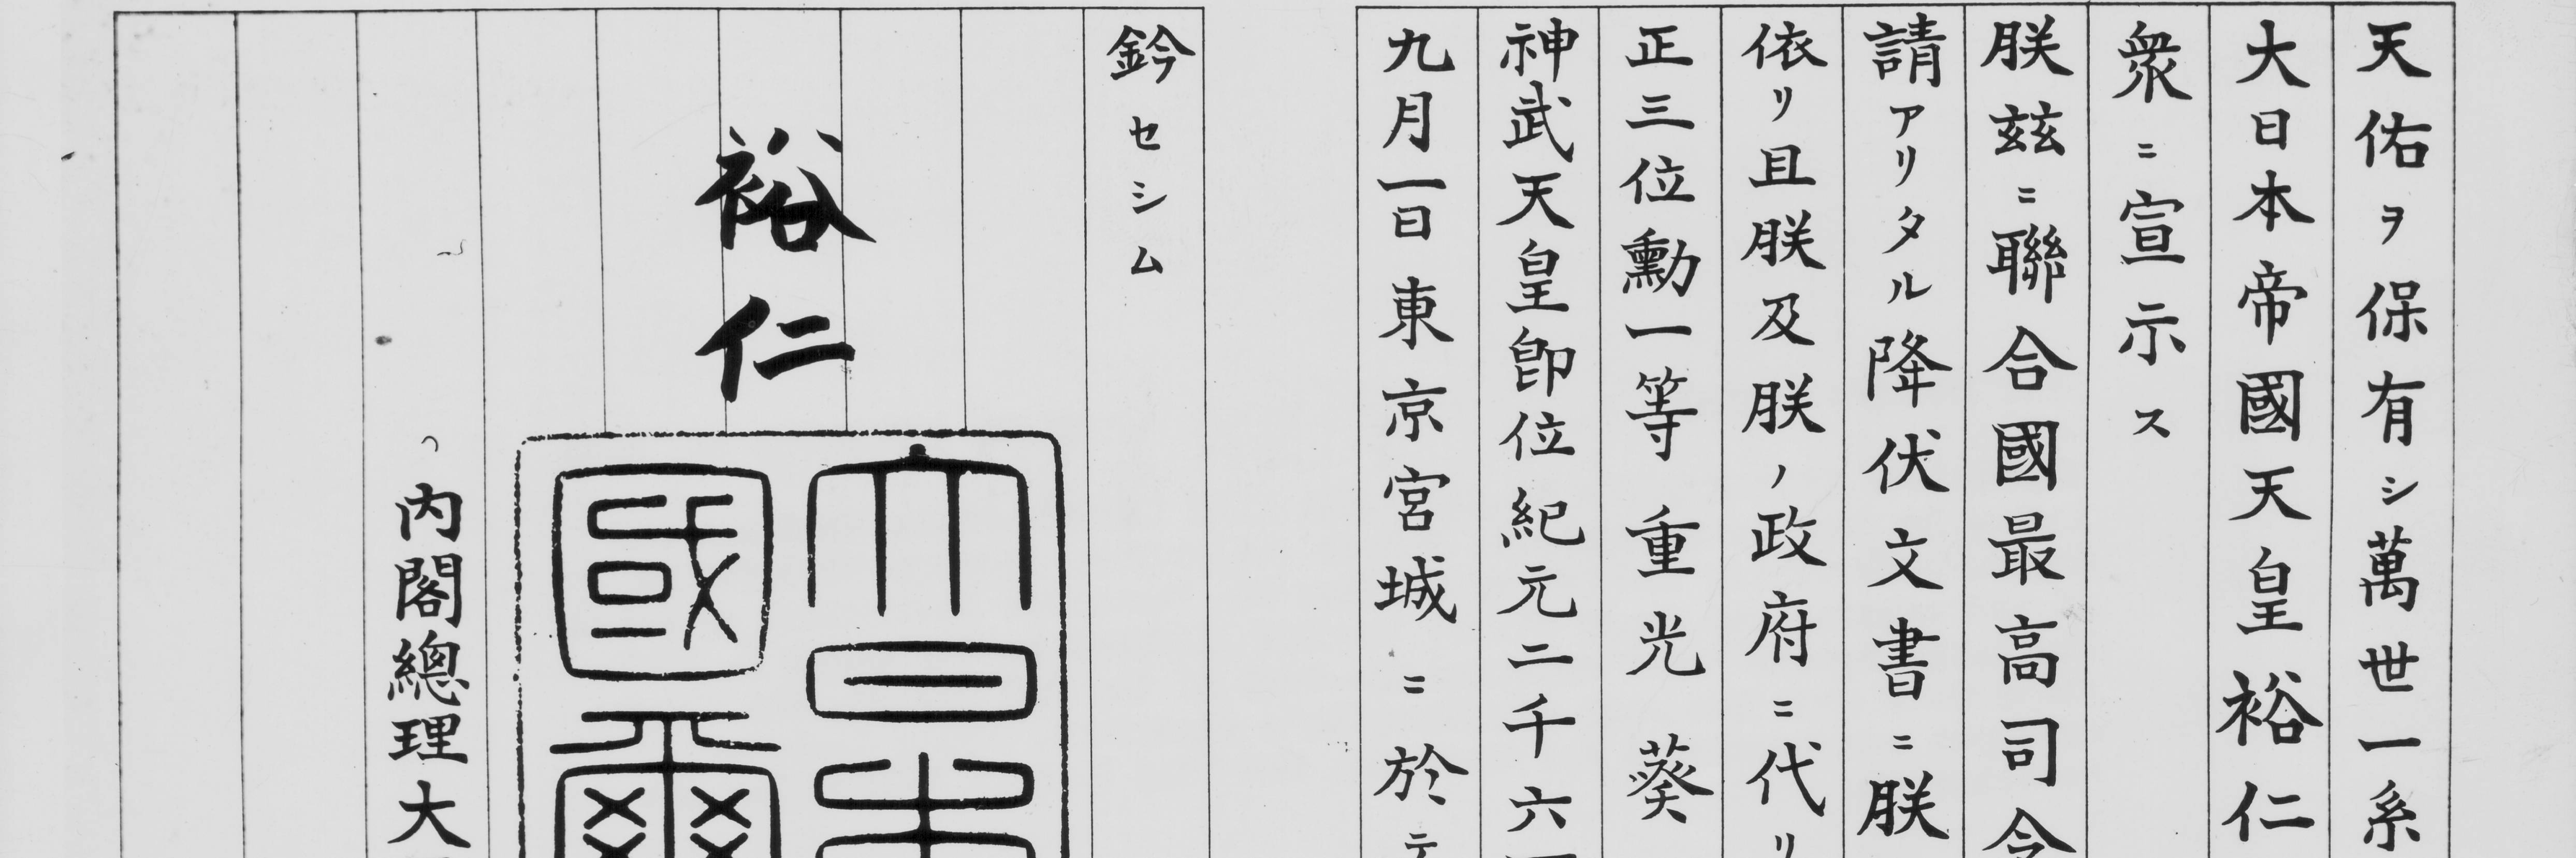 天佑ヲ保有シ萬世一系
大日本帝國天皇裕仁
衆ニ宣示ス
朕玆ニ聯合國最高司令
請アリタル降伏文書ニ朕
依リ且朕及朕ノ政府ニ代リ
正三位勳一等重光葵
神武天皇卽位紀元二千六
九月一日東京宮城ニ於テ
鈐セシム
裕仁
大日本
國璽
內閣總理大